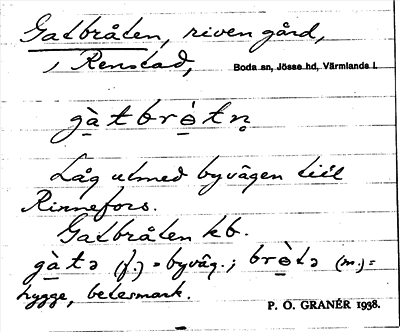 Gatbråten, riven gård,
i Renstad,
Boda sn, Jösse hd, Värmlands l.
gàtbròtn̥
Låg utmed byvägen till
Rinnefors.
Gatbråten kb.
gàtə (f.) = byväg.; bròtə (m.) =
hygge, betesmark.
P. O. GRANÉR 1938.